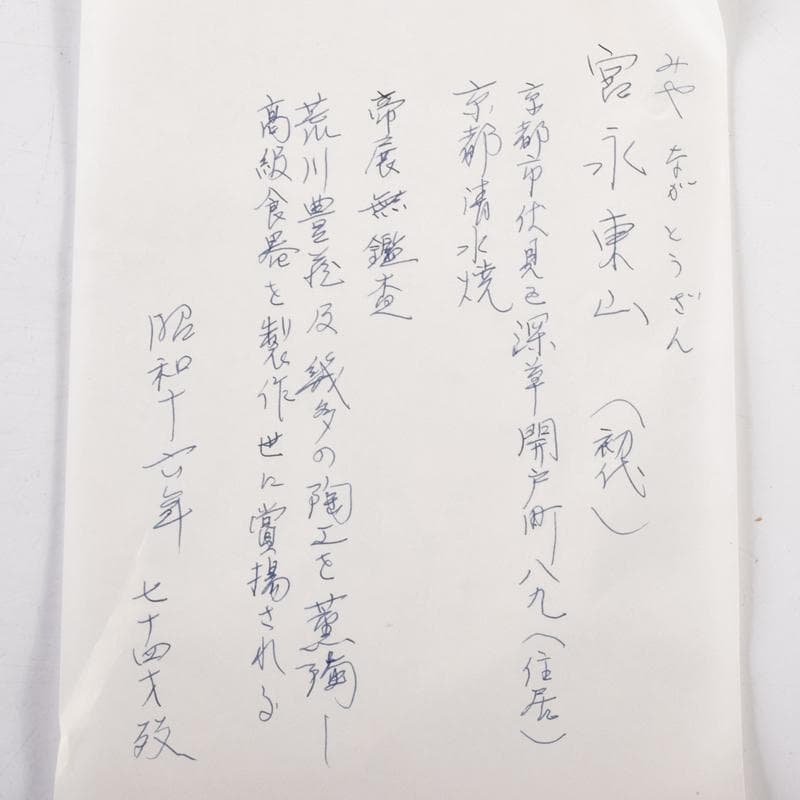 みやながとうざん
宮永東山（初代）
京都市伏見区深草開戸町八九（住居）
京都清水焼
帝展無鑑査
荒川豊蔵及幾多の陶工を薫陶し
高級食器を製作世に賞揚される
昭和十六年 七十四才歿